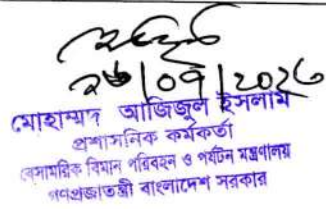 ২৬/০৭/২০২৬
মোহাম্মদ আজিজুল ইসলাম
প্রশাসনিক কর্মকর্তা
বেসামরিক বিমান পরিবহন ও পর্যটন মন্ত্রণালয়
গণপ্রজাতন্ত্রী বাংলাদেশ সরকার